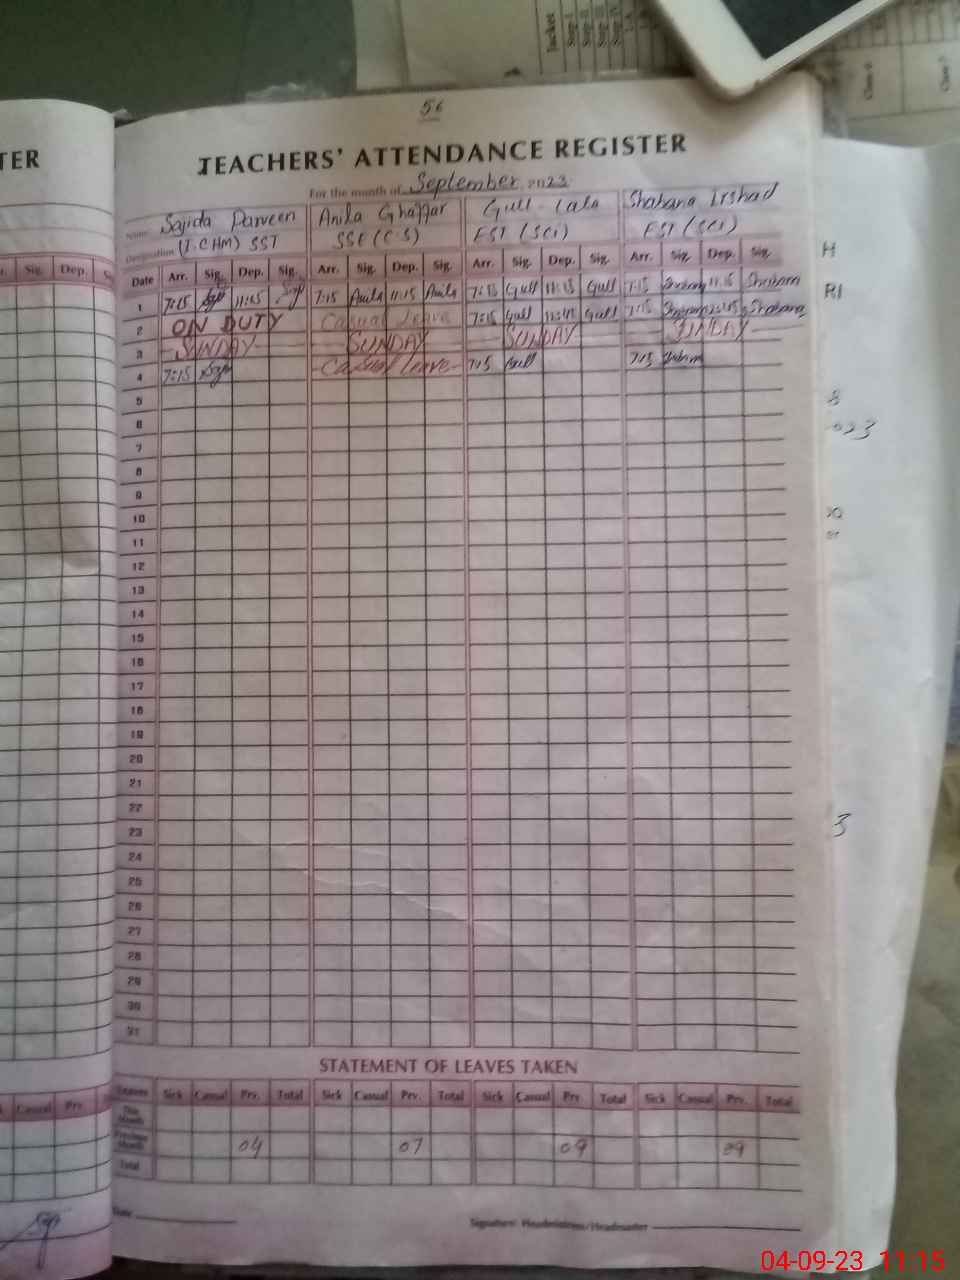 Jacket
Stap-I
Stap-II
Stap-III
Stap-IV
Class 6
Class 7
56
TER
TEACHERS' ATTENDANCE REGISTER
For the month of September 2023
Name Sajida Parveen Anila Ghaffar Gull-Lala Shahana Irshad
Designation (I.CHM) SST SSE (C.S) EST (SCI) EST (SCI)
Sig. Dep.
Date Arr. Sig. Dep. Sig. Arr. Sig. Dep. Sig. Arr. Sig. Dep. Sig. Arr. Sig. Dep. Sig.
1 7:15 11:15 7:15 Anila 11:15 Anila 7:15 Gull 11:15 Gull 7:15 Shahana 11:15 Shahana
2 ON DUTY Casual Leave 7:15 Gull 12:45 Gull 7:15 Shahana 12:45 Shahana
3 SUNDAY SUNDAY SUNDAY SUNDAY
4 7:15 Casual Leave 7:15 Gull 7:15
5
6
7
8
9
10
11
12
13
14
15
16
17
18
19
20
21
22
23
24
25
26
27
28
29
30
31
STATEMENT OF LEAVES TAKEN
Casual Prv.
Leaves Sick Casual Prv. Total Sick Casual Prv. Total Sick Casual Prv. Total Sick Casual Prv. Total
This Month
Previous Month 04 07 09 09
Total
Date
Signature: Headmistress/Headmaster
H
RI
3
04-09-23 11:15